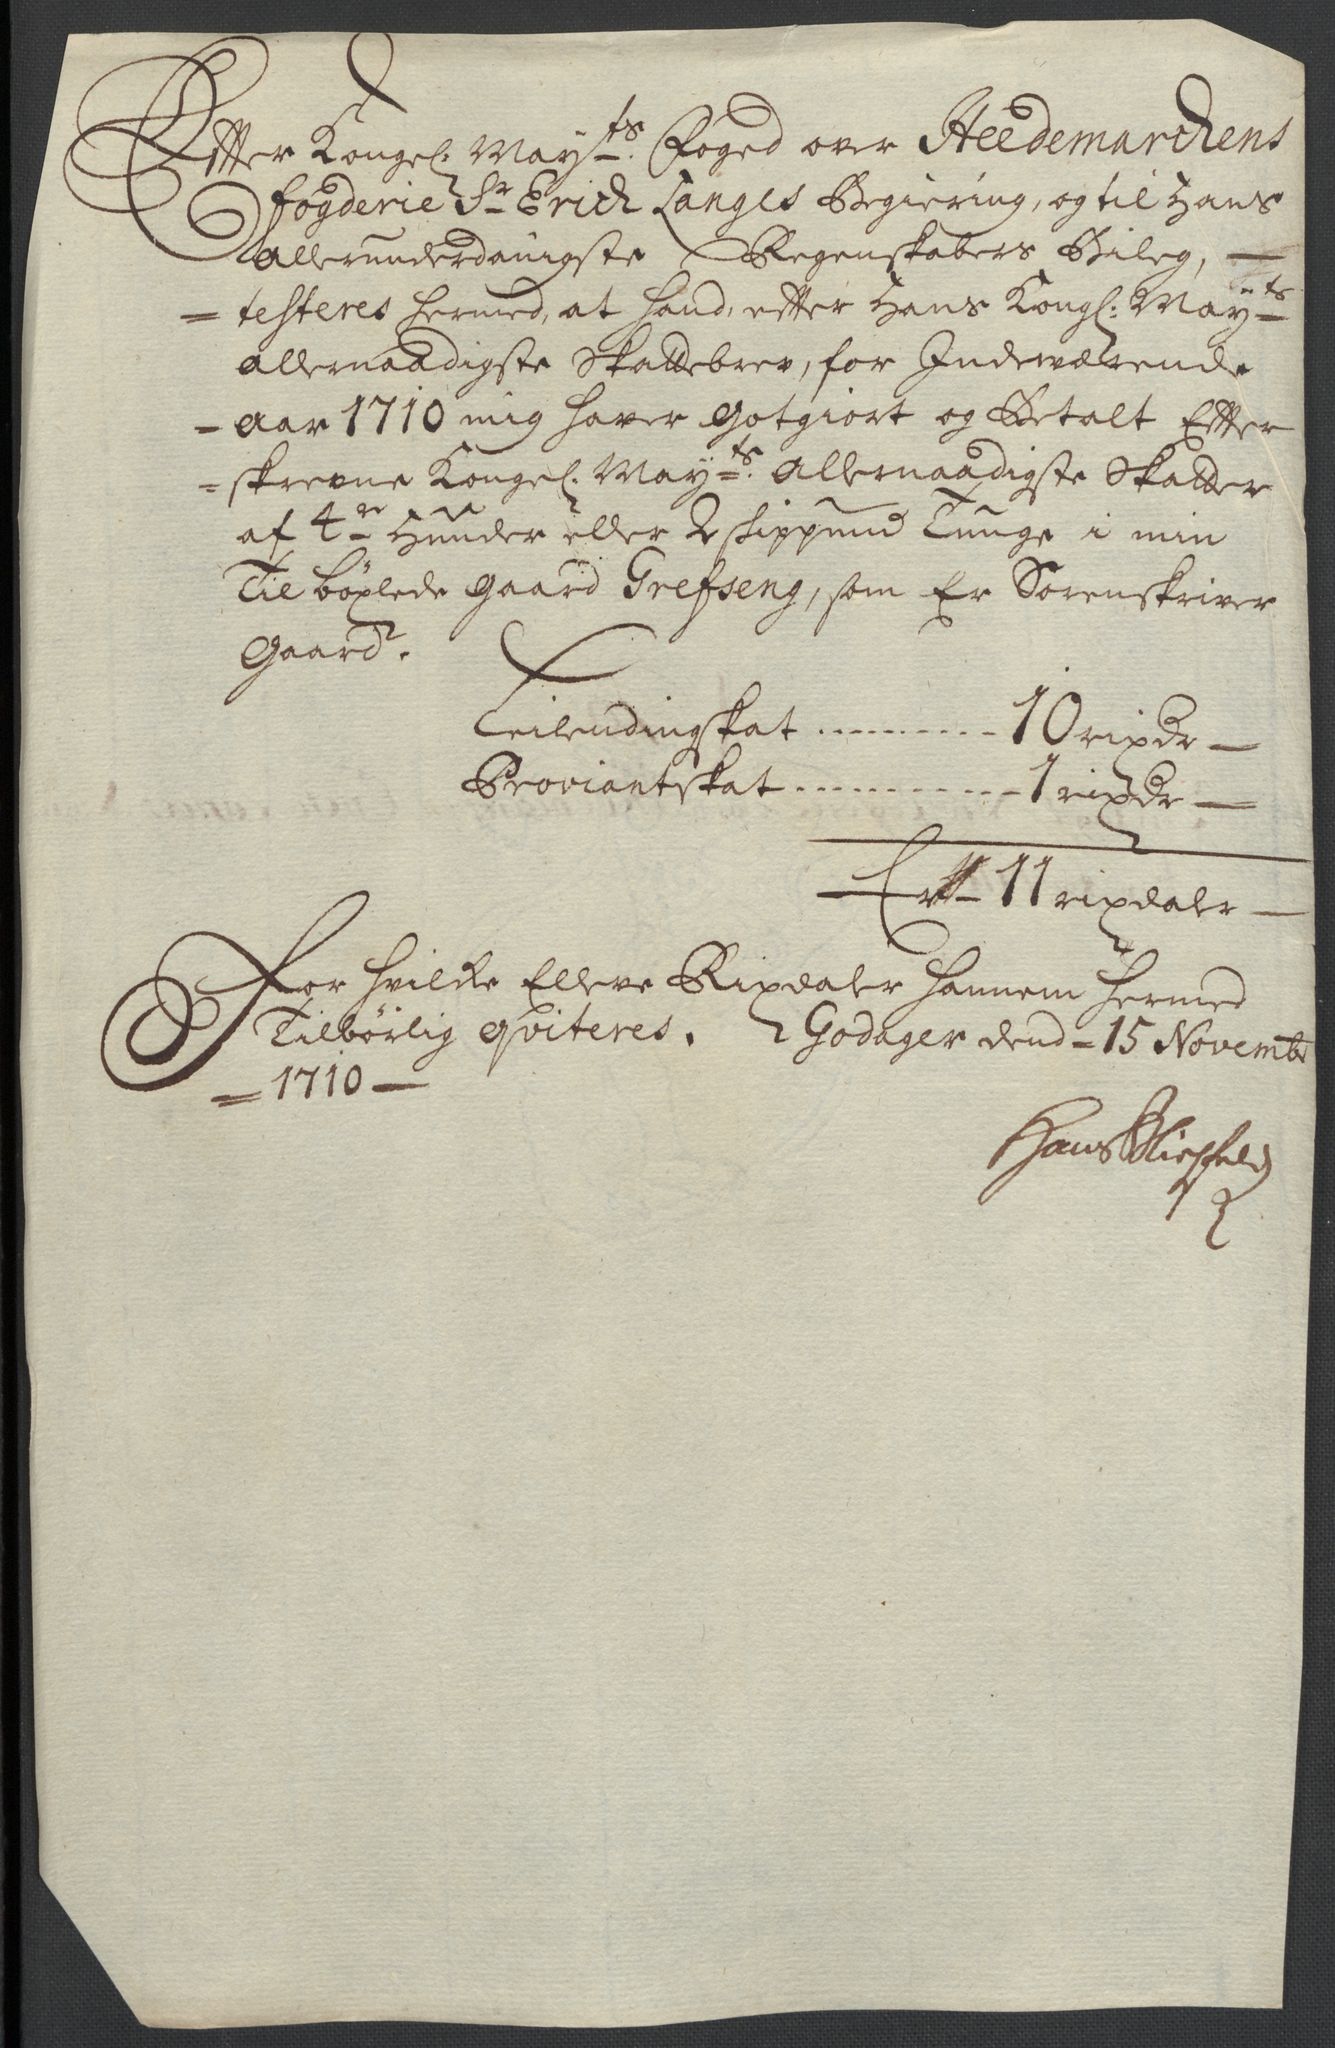 Effter Kongel: May:ts Foged over Heedemarckens
fogderie Sr Erich Langes Begiering, og til Hans
allerunderdanigste Regenskabers Bileg, —
= testeres hermed, at hand, effter Hans Kongl: May:ts
allernaadigste Skattebrev, for Indeværende
- aar 1710 mig haver gotgiort og Betalt Effter
= skrevne Kongel: May:ts allernaadigste Skatter
af 4re Hunder eller 2 skippund Tunge i min
Tilböxlede gaard Grefseng, som Er Sorenskriver
gaard.
Leilendingskat ......... 10 rixdr —
Proviantskat ............ 1 rixdr —
Er 11 rixdaler —
For hvilcke Elleve Rixdaler hannem hermed
Tilbörlig qviteres. Godager dend - 15 Novembr
= 1710 —
Hans